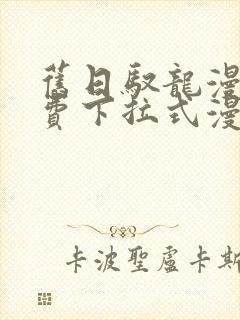 舊日馭龍漫
費下拉式漫
卡波聖盧卡斯